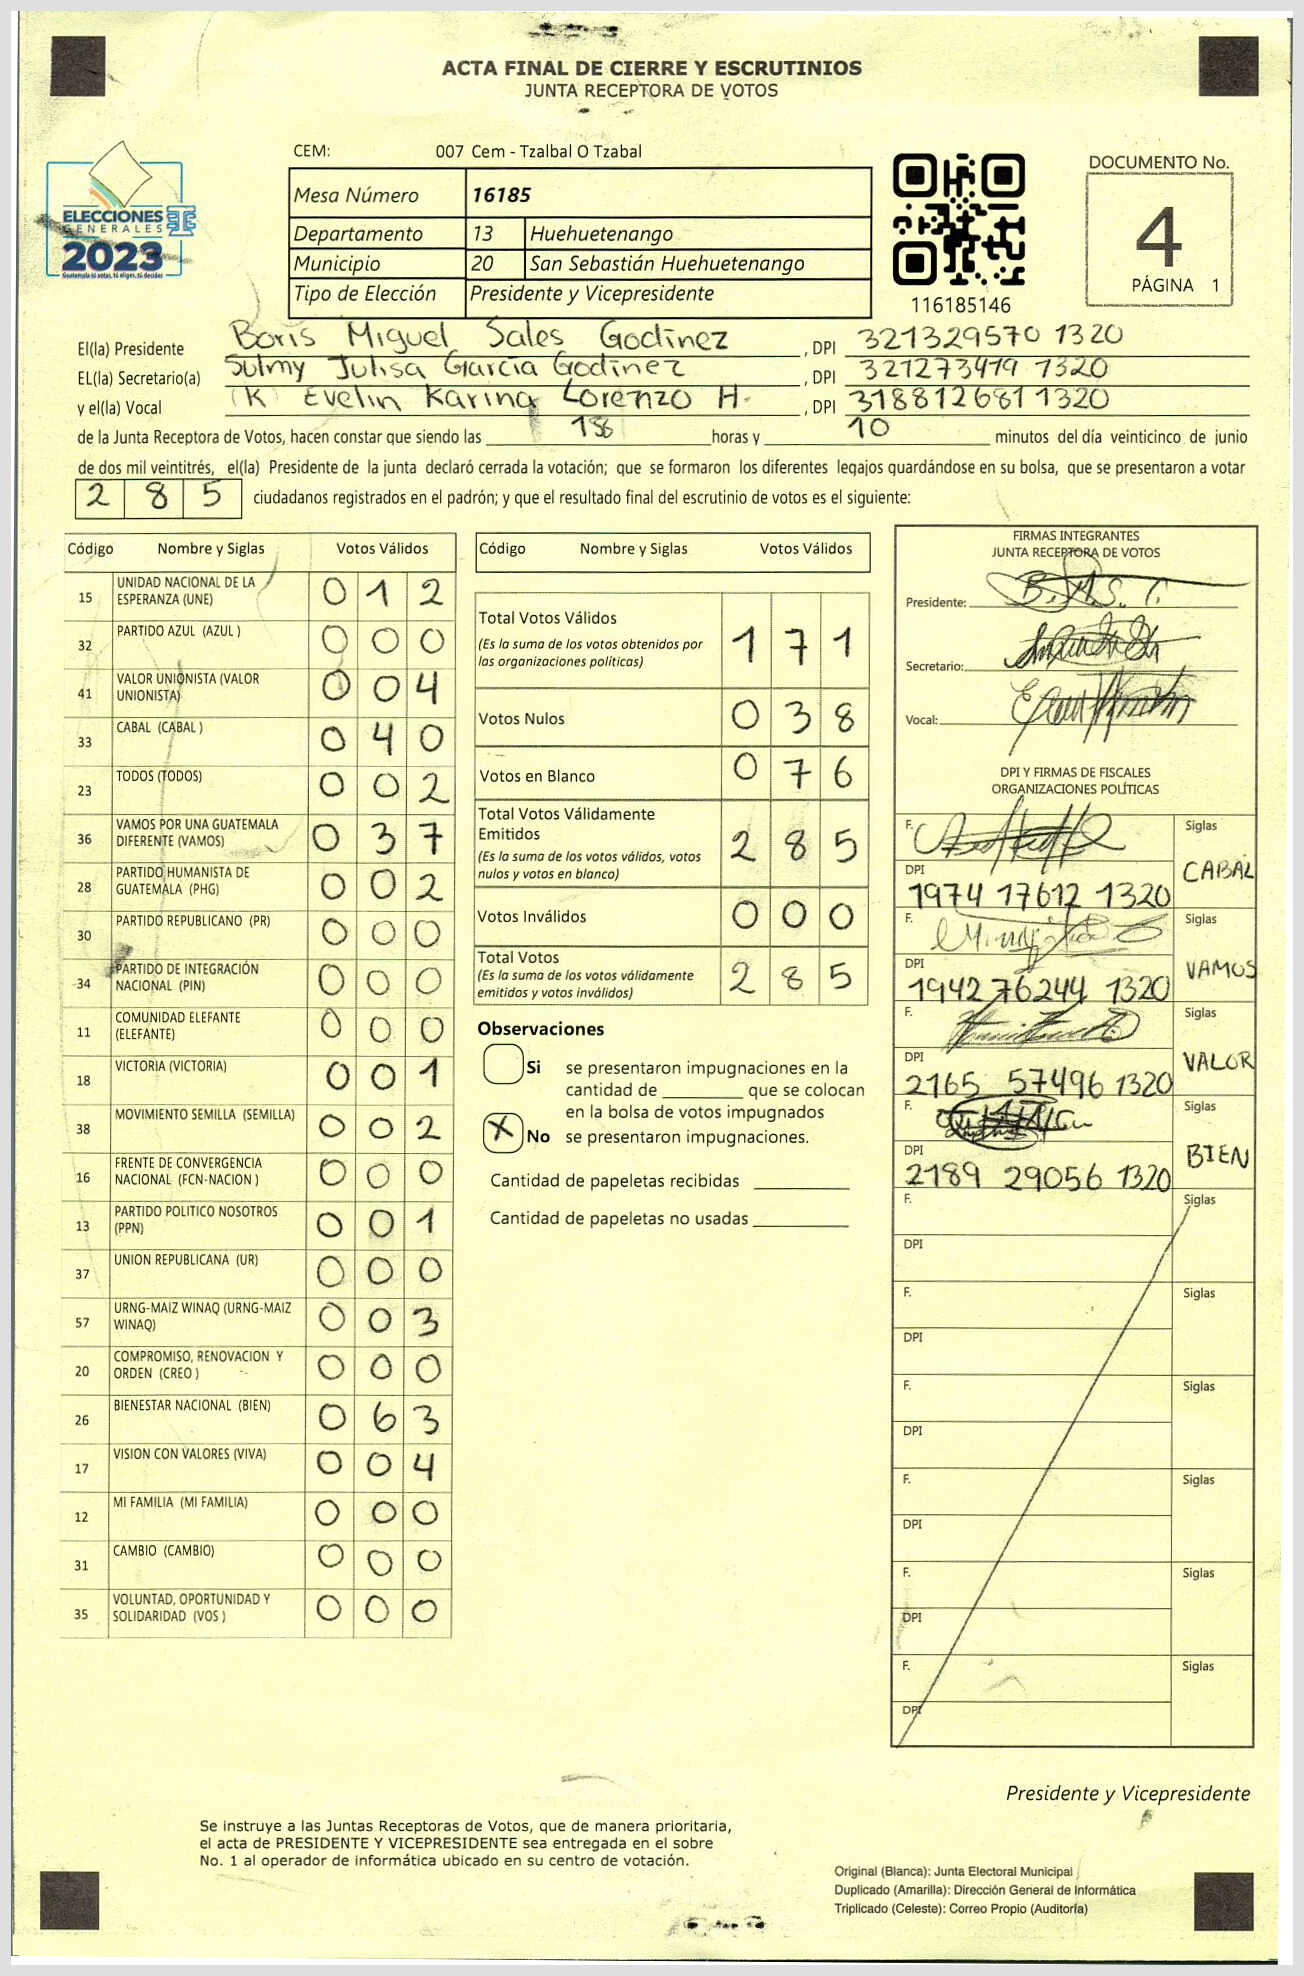 ACTA FINAL DE CIERRE Y ESCRUTINIOS
JUNTA RECEPTORA DE VOTOS
ELECCIONES
GENERALES
2023
Guatemala tú votas, tú eliges, tú decides
CEM: 007 Cem - Tzalbal O Tzabal
Mesa Número 16185
Departamento 13 Huehuetenango
Municipio 20 San Sebastián Huehuetenango
Tipo de Elección Presidente y Vicepresidente
116185146
DOCUMENTO No.
4
PÁGINA 1
El(la) Presidente Boris Miguel Sales Godinez , DPI 321329570 1320
EL(la) Secretario(a) Sulmy Julisa García Godinez , DPI 321273419 1320
y el(la) Vocal (K) Evelin Karina Lorenzo H. , DPI 318812681 1320
de la Junta Receptora de Votos, hacen constar que siendo las 18 horas y 10 minutos del día veinticinco de junio
de dos mil veintitrés, el(la) Presidente de la junta declaró cerrada la votación; que se formaron los diferentes legajos quardándose en su bolsa, que se presentaron a votar
2 8 5 ciudadanos registrados en el padrón; y que el resultado final del escrutinio de votos es el siguiente:
Código Nombre y Siglas Votos Válidos
15 UNIDAD NACIONAL DE LA ESPERANZA (UNE) 0 1 2
32 PARTIDO AZUL (AZUL ) 0 0 0
41 VALOR UNIONISTA (VALOR UNIONISTA) 0 0 4
33 CABAL (CABAL ) 0 4 0
23 TODOS (TODOS) 0 0 2
36 VAMOS POR UNA GUATEMALA DIFERENTE (VAMOS) 0 3 7
28 PARTIDO HUMANISTA DE GUATEMALA (PHG) 0 0 2
30 PARTIDO REPUBLICANO (PR) 0 0 0
34 PARTIDO DE INTEGRACIÓN NACIONAL (PIN) 0 0 0
11 COMUNIDAD ELEFANTE (ELEFANTE) 0 0 0
18 VICTORIA (VICTORIA) 0 0 1
38 MOVIMIENTO SEMILLA (SEMILLA) 0 0 2
16 FRENTE DE CONVERGENCIA NACIONAL (FCN-NACION ) 0 0 0
13 PARTIDO POLITICO NOSOTROS (PPN) 0 0 1
37 UNION REPUBLICANA (UR) 0 0 0
57 URNG-MAIZ WINAQ (URNG-MAIZ WINAQ) 0 0 3
20 COMPROMISO, RENOVACION Y ORDEN (CREO ) 0 0 0
26 BIENESTAR NACIONAL (BIEN) 0 6 3
17 VISION CON VALORES (VIVA) 0 0 4
12 MI FAMILIA (MI FAMILIA) 0 0 0
31 CAMBIO (CAMBIO) 0 0 0
35 VOLUNTAD, OPORTUNIDAD Y SOLIDARIDAD (VOS ) 0 0 0
Código Nombre y Siglas Votos Válidos
Total Votos Válidos 1 7 1
(Es la suma de los votos obtenidos por
las organizaciones políticas)
Votos Nulos 0 3 8
Votos en Blanco 0 7 6
Total Votos Válidamente
Emitidos 2 8 5
(Es la suma de los votos válidos, votos
nulos y votos en blanco)
Votos Inválidos 0 0 0
Total Votos 2 8 5
(Es la suma de los votos válidamente
emitidos y votos inválidos)
Observaciones
Si se presentaron impugnaciones en la
cantidad de ________ que se colocan
en la bolsa de votos impugnados
X No se presentaron impugnaciones.
Cantidad de papeletas recibidas
Cantidad de papeletas no usadas
FIRMAS INTEGRANTES
JUNTA RECEPTORA DE VOTOS
Presidente: B.M.S.G.
Secretario:
Vocal:
DPI Y FIRMAS DE FISCALES
ORGANIZACIONES POLÍTICAS
F. Siglas
DPI CABAL
1974 17612 1320
F. Siglas
DPI VAMOS
1942 76244 1320
F. Siglas
DPI VALOR
2165 57496 1320
F. Siglas
DPI BIEN
2189 29056 1320
F. Siglas
DPI
F. Siglas
DPI
F. Siglas
DPI
F. Siglas
DPI
F. Siglas
DPI
F. Siglas
DPI
Presidente y Vicepresidente
Se instruye a las Juntas Receptoras de Votos, que de manera prioritaria,
el acta de PRESIDENTE Y VICEPRESIDENTE sea entregada en el sobre
No. 1 al operador de informática ubicado en su centro de votación.
Original (Blanca): Junta Electoral Municipal
Duplicado (Amarilla): Dirección General de Informática
Triplicado (Celeste): Correo Propio (Auditoría)